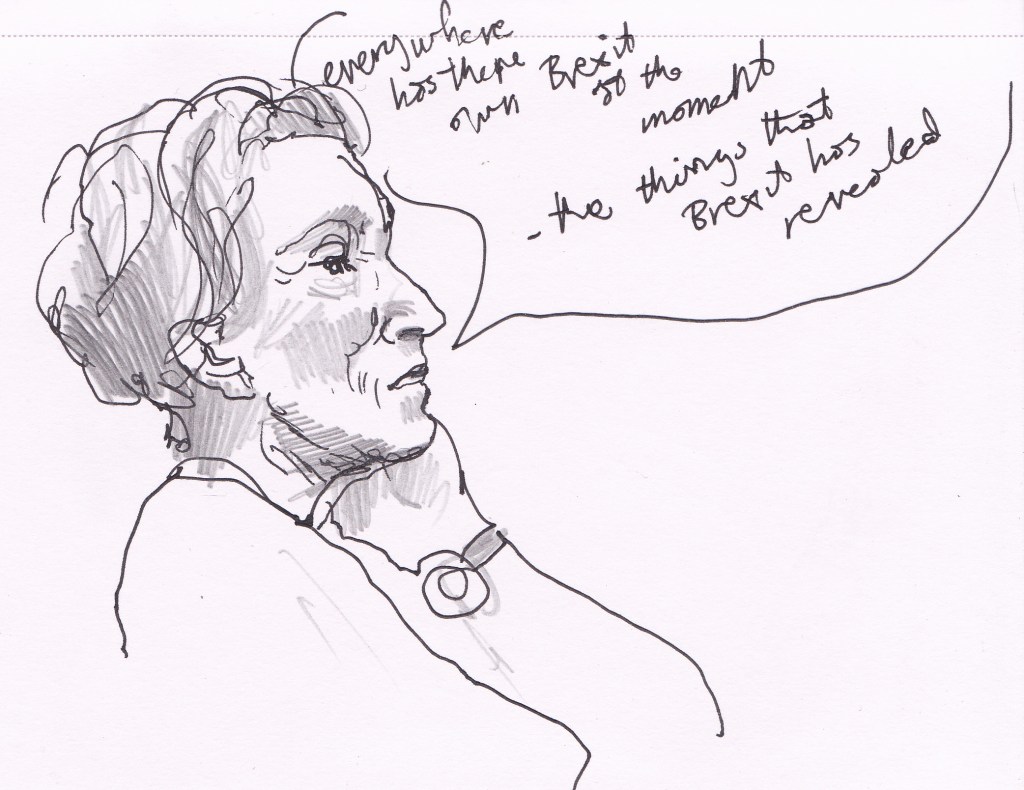 everywhere
has there Brexit
own at the
moment
- the things that
Brexit has
revealed